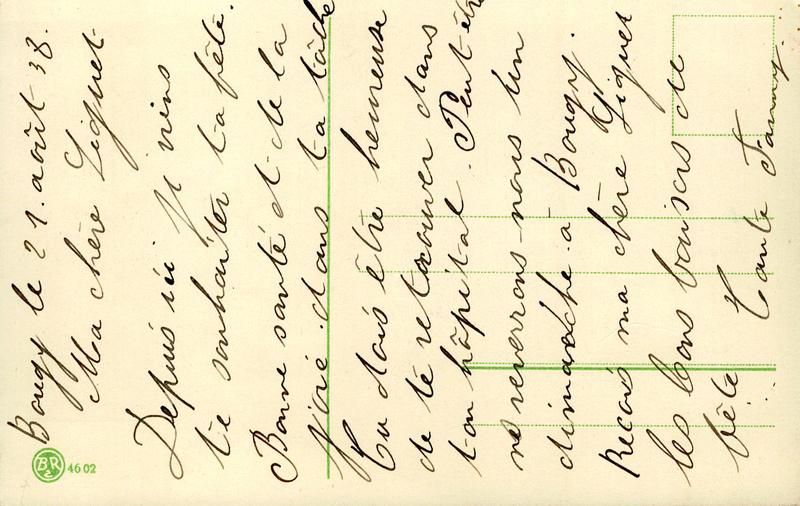 Bougy le 21. août 38.
Ma chère Ziquet
Depuis ici je viens
te souhaiter ta fête.
Bonne santé et de la
joie dans ta tâche
Tu dois être heureuse
de te retrouver dans
ton hôpital. Peut-être
nous reverrons-nous un
dimanche à Bougy.
Reçois ma chère Ziquet
les bons baisers de
fête Tante Fanny.
BR
4602